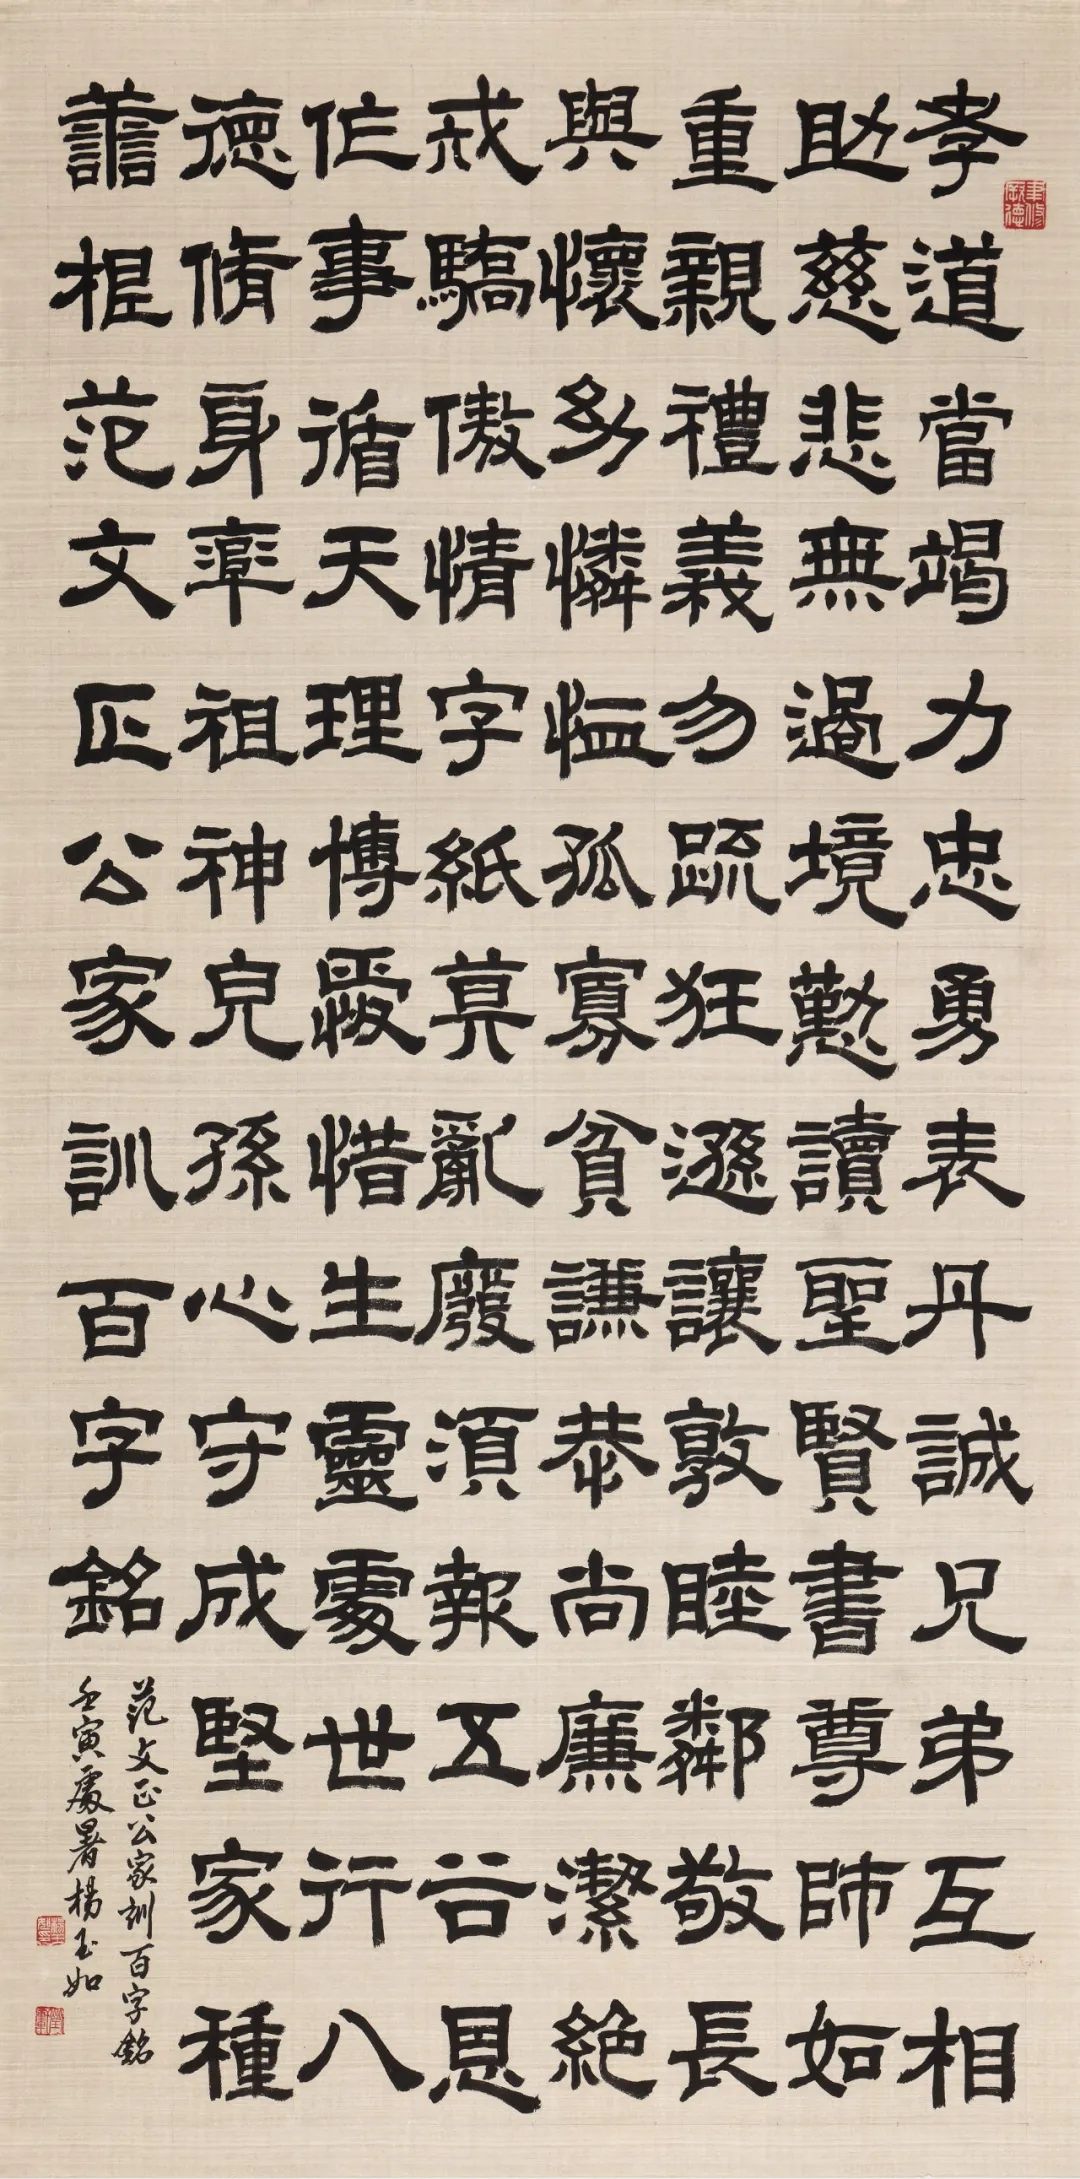 孝道當竭力忠勇表丹誠兄弟互相
助慈悲無過境懃讀聖賢書尊師如
重親禮義勿疏狂遜讓敦睦鄰敬長
與懷幼憐恤孤寡貧謙恭尚廉潔絕
戒驕傲情字紙莫亂廢須報五谷恩
作事循天理博愛惜生靈處世行八
德脩身率祖神兒孫心守成堅家種
善根范文正公家訓百字銘
范文正公家訓百字銘
壬寅處暑楊玉如
聿修厥德